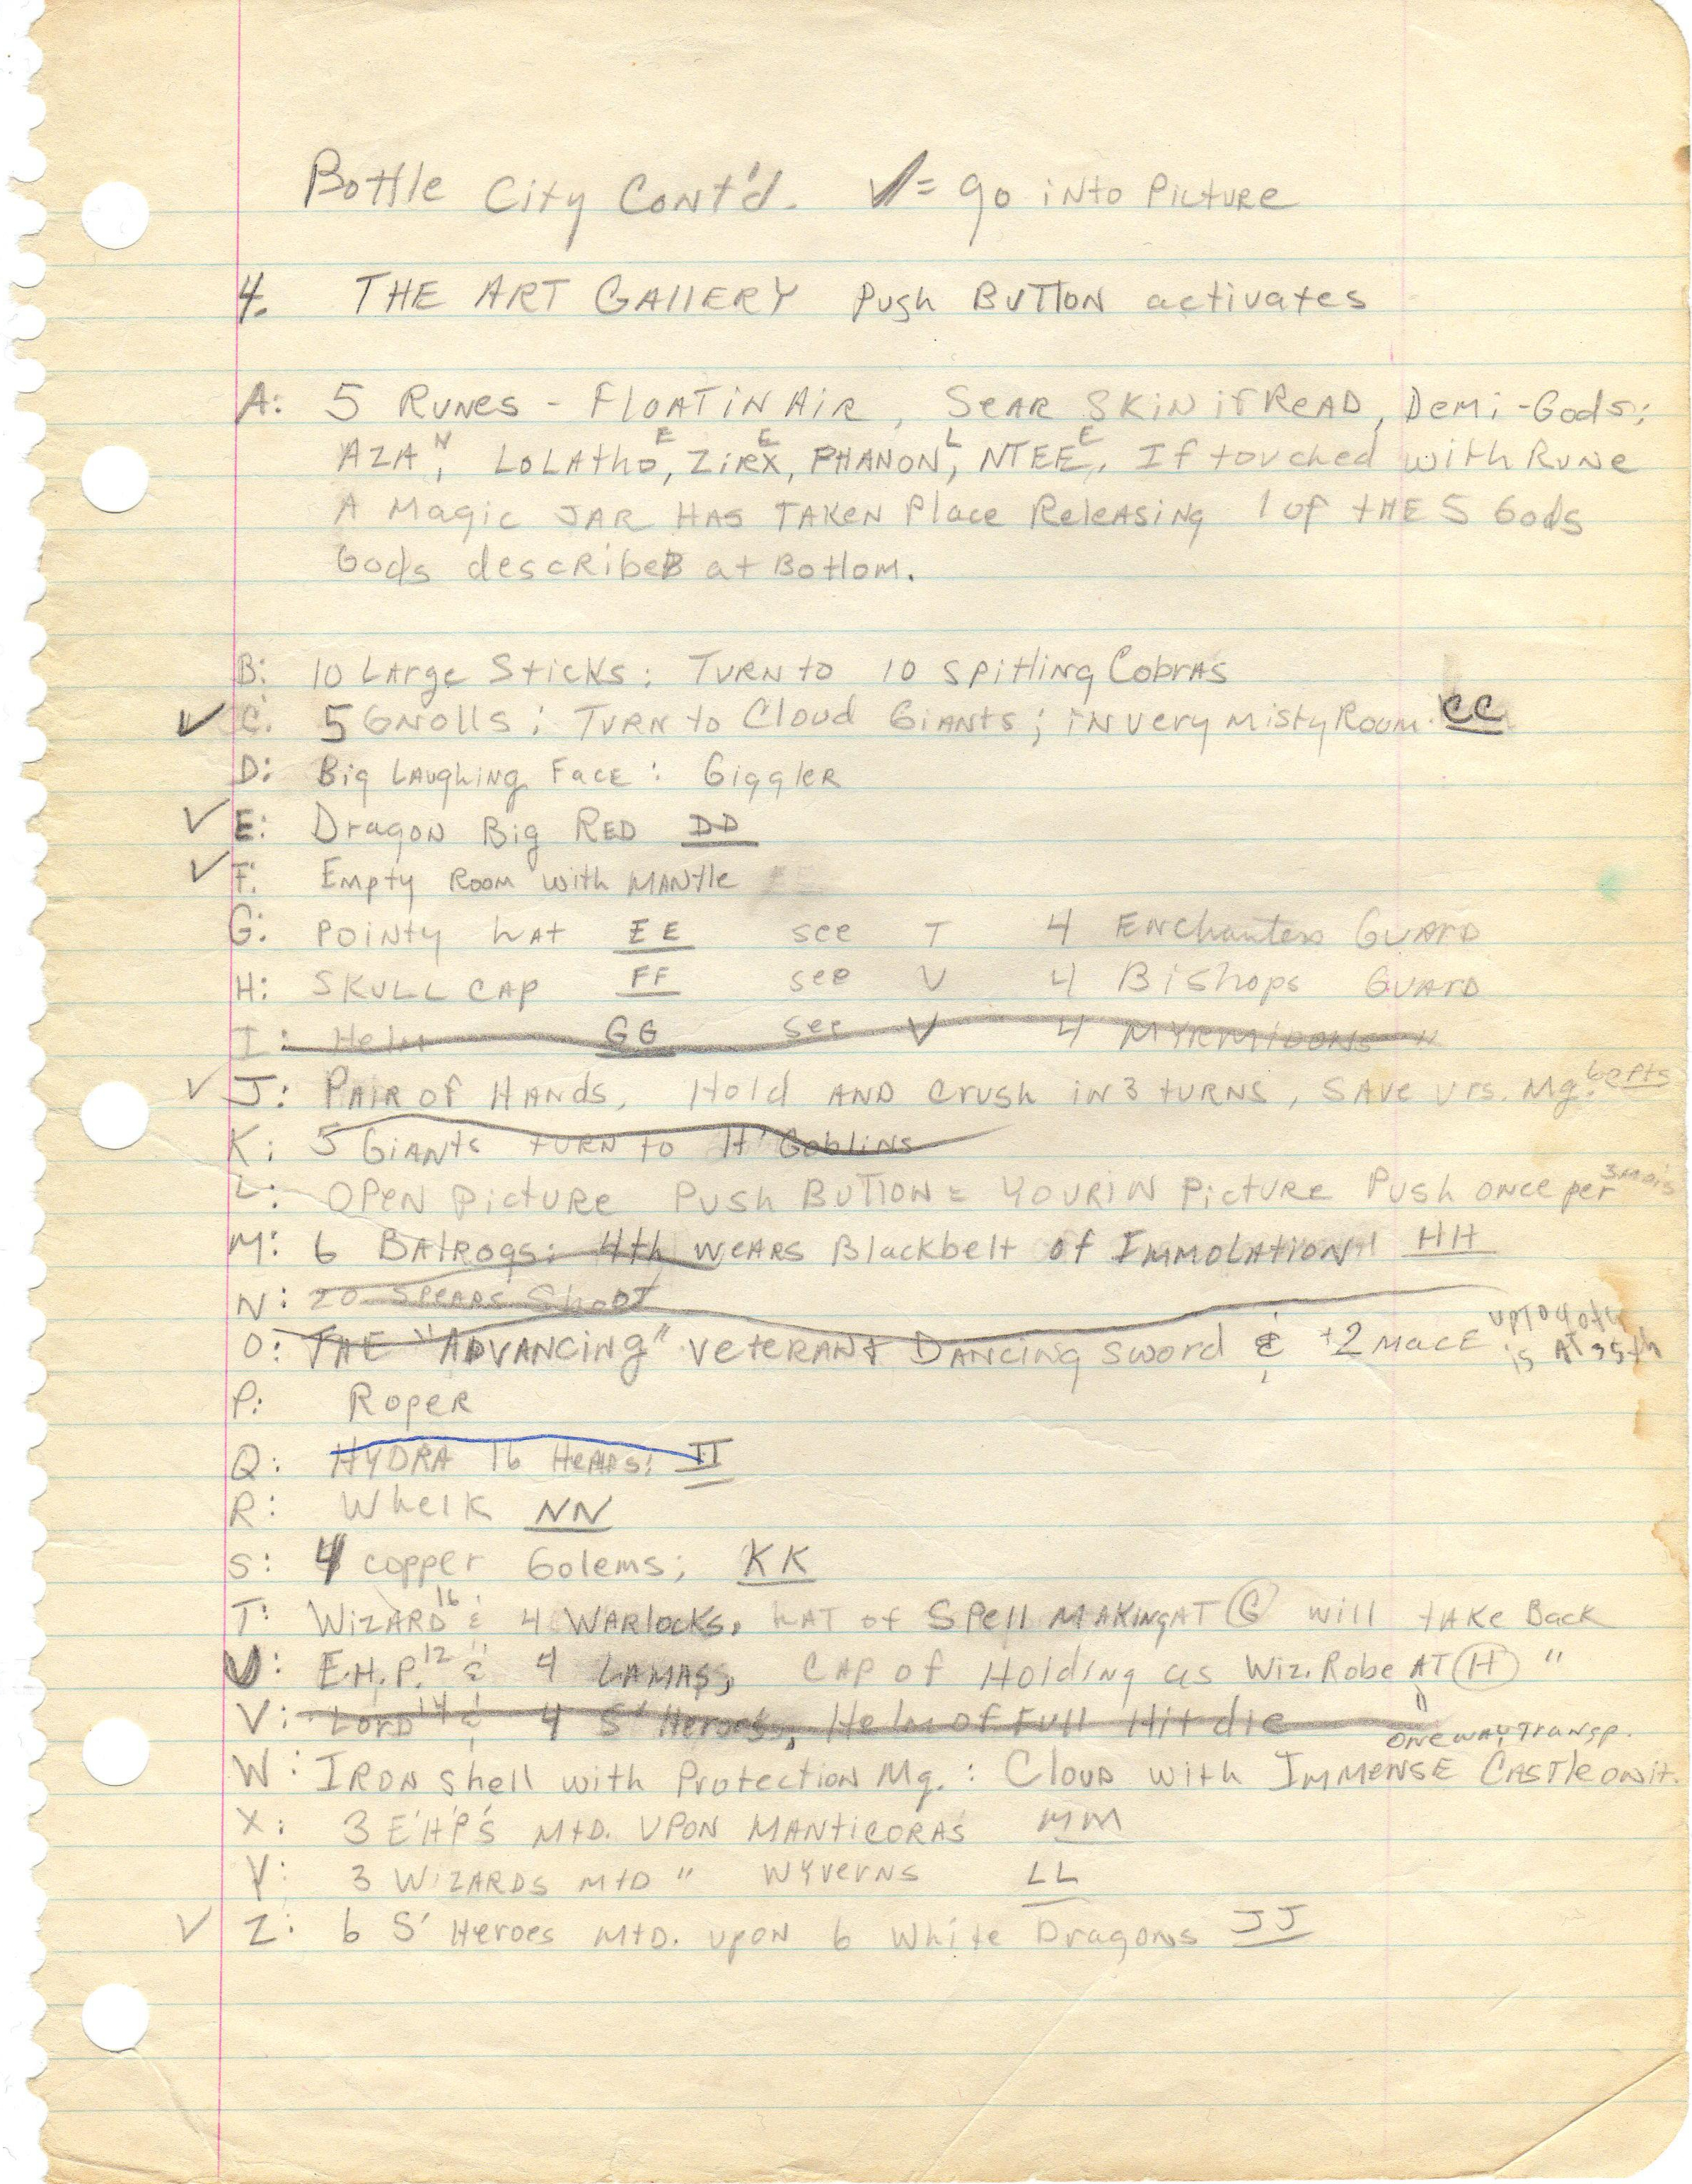 Bottle City Cont'd. ✓= go into Picture
4. THE ART GALLERY Push BUTTON activates
A: 5 RUNES - FLOAT IN AIR, SEAR SKIN if READ, Demi-Gods;
AZA N, LOLATHO E, ZIRX E, PHANON L, NTEE E. If touched with Rune
A Magic JAR HAS TAKEN Place Releasing 1 of tHE 5 Gods
Gods describeB at Bottom.
B: 10 Large Sticks: TURN to 10 spitting Cobras
✓ C: 5 Gnolls; TURN to Cloud Giants; in very misty Room. CC
D: Big Laughing Face: Giggler
✓ E: Dragon Big RED DD
✓ F. Empty Room with MANtle
G: POINty hAt EE see T 4 Enchanters GUARD
H: SKULL CAP FF see V 4 Bishops GUARD
I: Helm GG see V 4 MYRMIDONS "
✓ J: PAIR of HANDS, Hold AND Crush in 3 turns, SAVE vrs. Mg.
K: 5 GIANts tURN to H' Goblins
L: OPEN picture Push BUTTON = YOUR IN Picture Push once per
M: 6 Balrogs: 4th wears Blackbelt of Immolation! HH
N: 20 Spears Shoot
O: THE "ADVANCING" veteran & Dancing sword & +2 mace
P: Roper
Q: HYDRA 16 Heads: II
R: Whelk NN
S: 4 copper Golems; KK
T: WIZARD 16 & 4 WARlocks, hAT of Spell MAKING AT G will tAKe Back
U: E.H.P. 12 & 4 LAMAS, CAP of Holding as Wiz. Robe AT H "
V: LORD 14 & 4 S' Heroes, Helm of Full Hit die "
one way Transp.
W: IRON shell with Protection Mg.: Cloud with IMMENSE CASTle on it.
X: 3 E'H'P'S Mtd. UPON MANTICORAS MM
Y: 3 WIZARDS Mtd " Wyverns LL
✓ Z: 6 S' Heroes Mtd. upon 6 White Dragons JJ